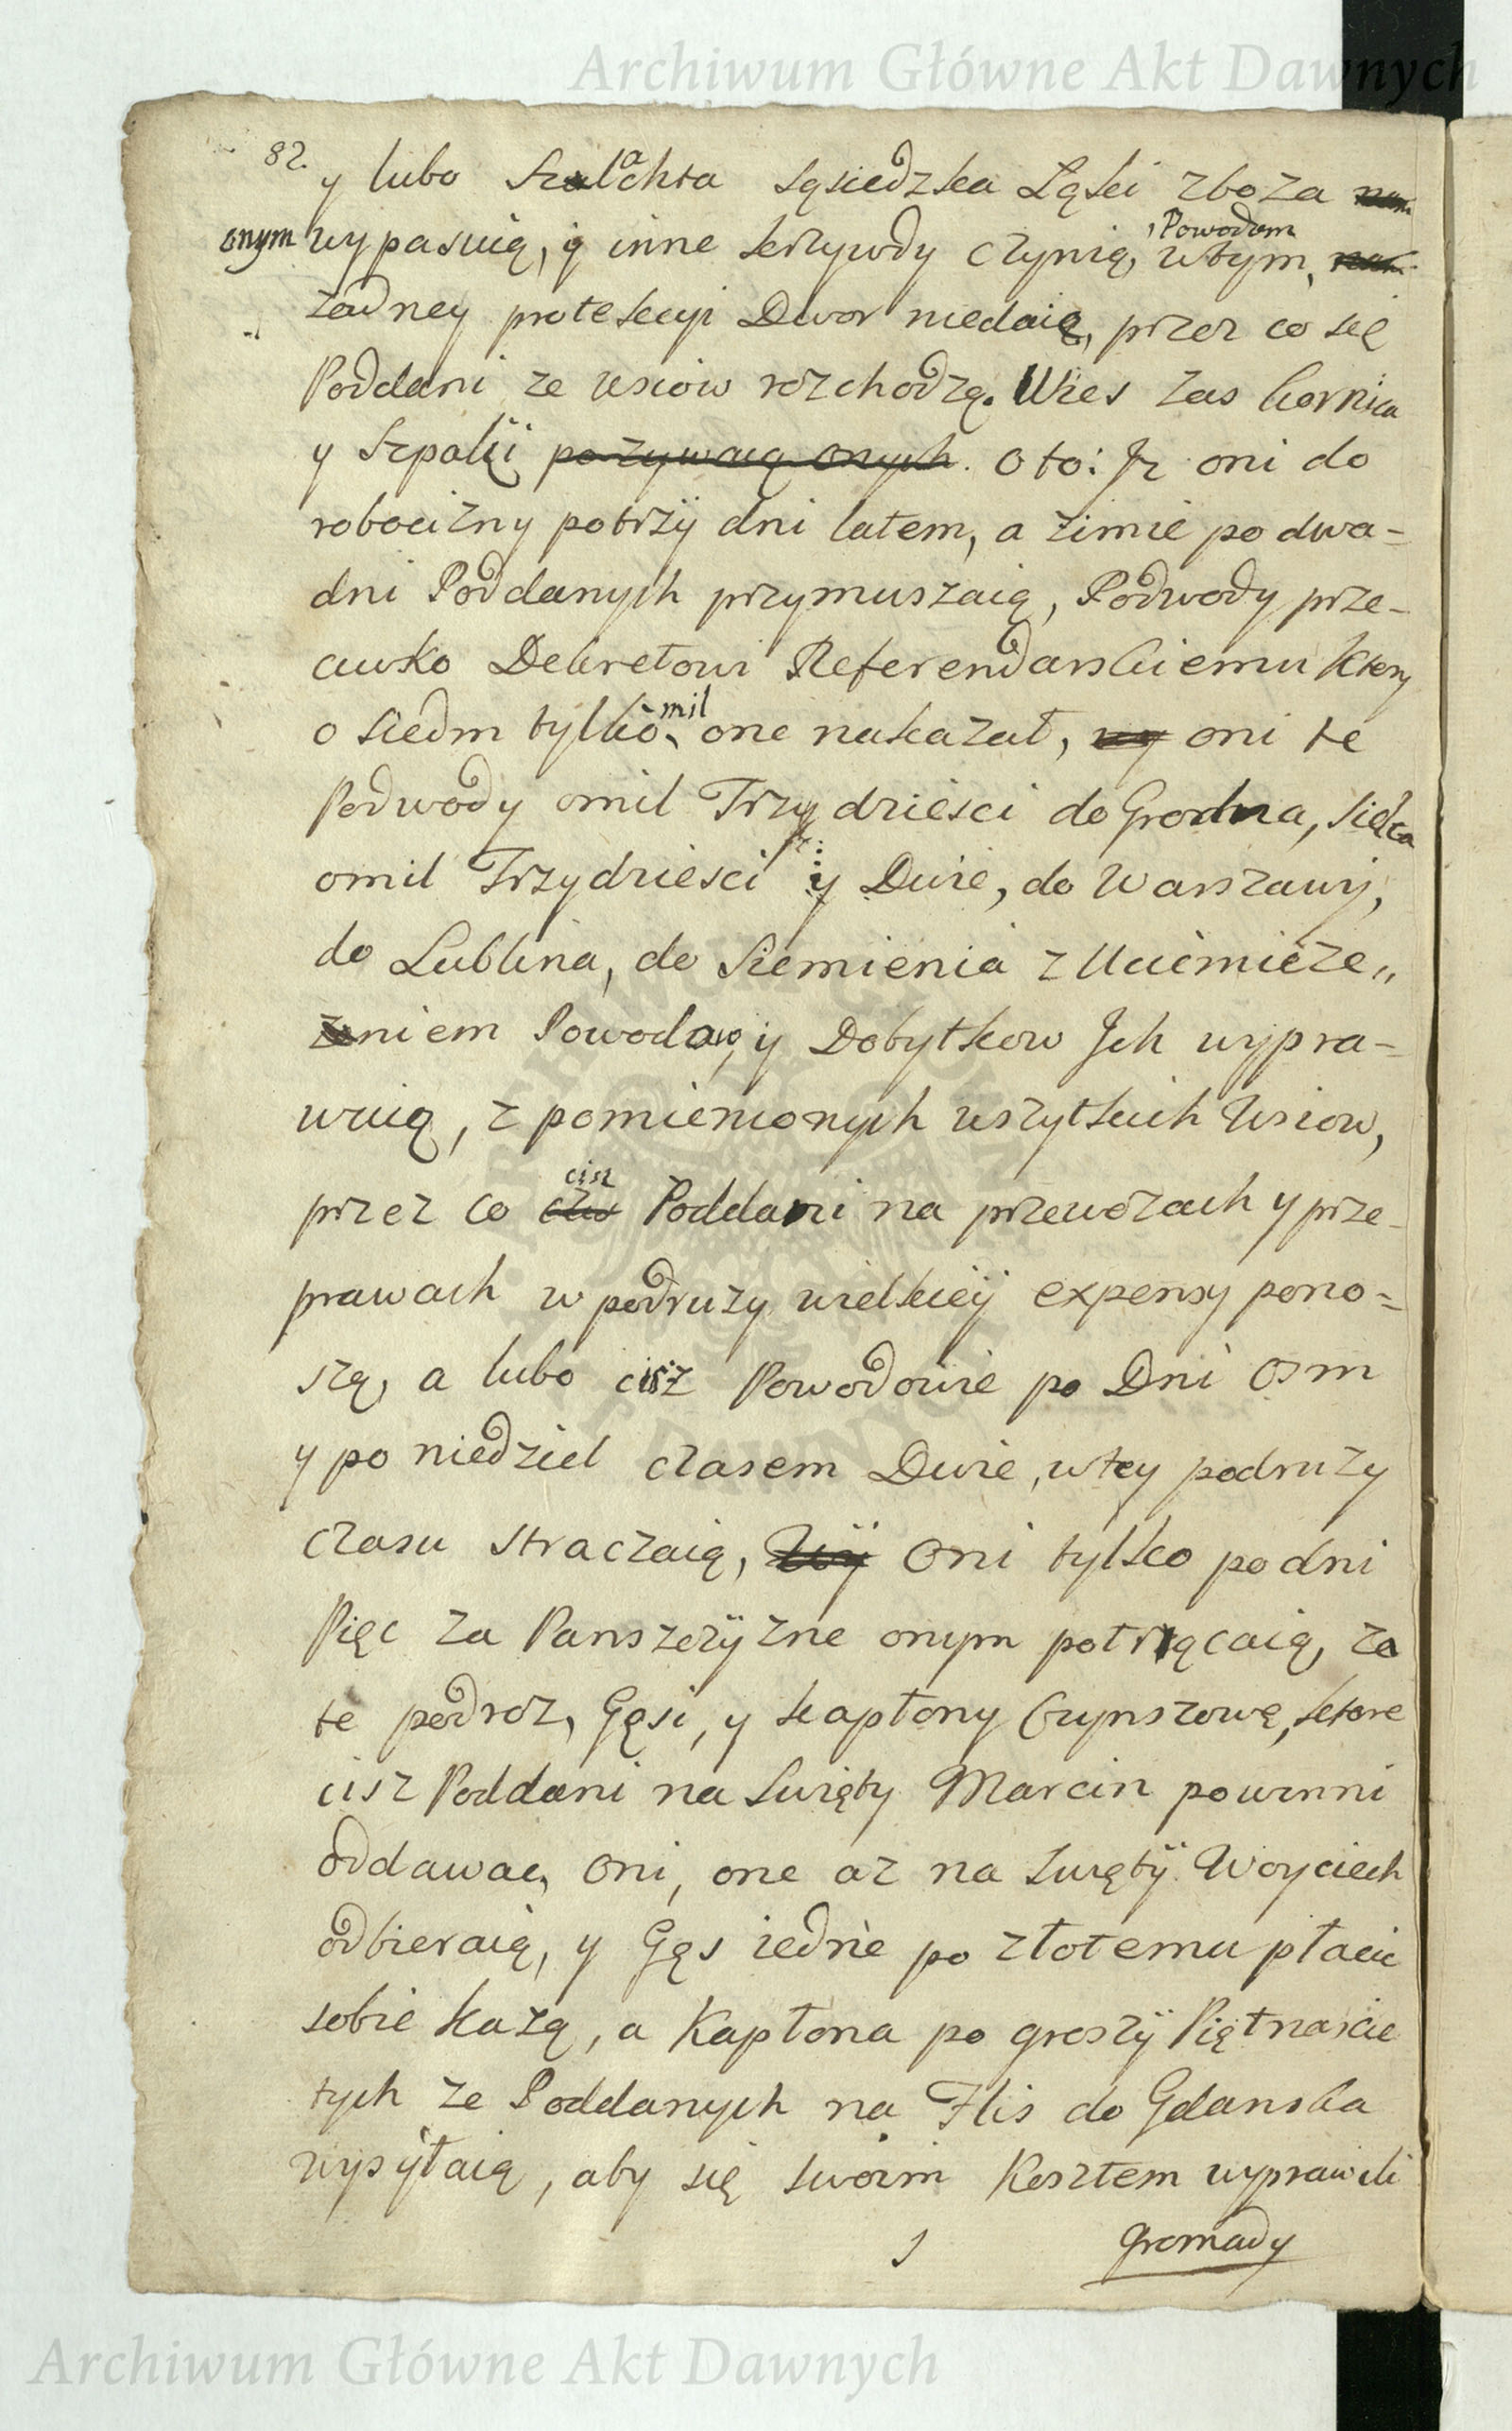 Archiwum Główne Akt Dawnych
82.
y lubo Szlachta sąsiedzka Łąki zboza
onym wypasuią, y inne krzywdy czynią, wtym Powodom
zadney protekcyi Dwor niedaie, przez co się
Poddani ze wsiow rozchodzą. Wies zas Cornica
y Szpalii pozywaią onych. o to: Jz oni do
robocizny potrzy dni latem, a zimie po dwa-
dni Poddanych przymuszaią, Podwody prze-
ciwko Dekretowi Referendarskiemu ktory
o siedm tylko mil one nakazał, oni te
Podwody omil Trzydziesci do Grodna,
omil Trzydziesci y Dwie, do Warszawy,
do Lublina, do Siemienia z Uciemięze„
niem Powodow, y Dobytkow Jch wypra-
wuią, z pomienionych wszytkich Wsiow,
przez co cisz Poddani na przewozach y prze-
prawach w podruzy wielkiey expensy pono=
szą, a lubo cisz Powodowie po Dni Osm
y po niedziel czasem Dwie, wtey podruzy
czasu straczaią, Oni tylko po dni
Pięc za Panszczyzne onym potrącaią, za
te podroz, Gęsi, y kapłony Czynszowe, ktore
cisz Poddani na Swięty Marcin powinni
oddawac, oni, one az na Swięty Woyciech
odbieraią, y Gęs iedne po złotemu płacic
sobie kazą, a Kapłona po groszy Piętnascie
tych ze Poddanych na Flis do Gdanska
wysyłaią, aby się swoim Kosztem wyprawili
gromady
Archiwum Główne Akt Dawnych